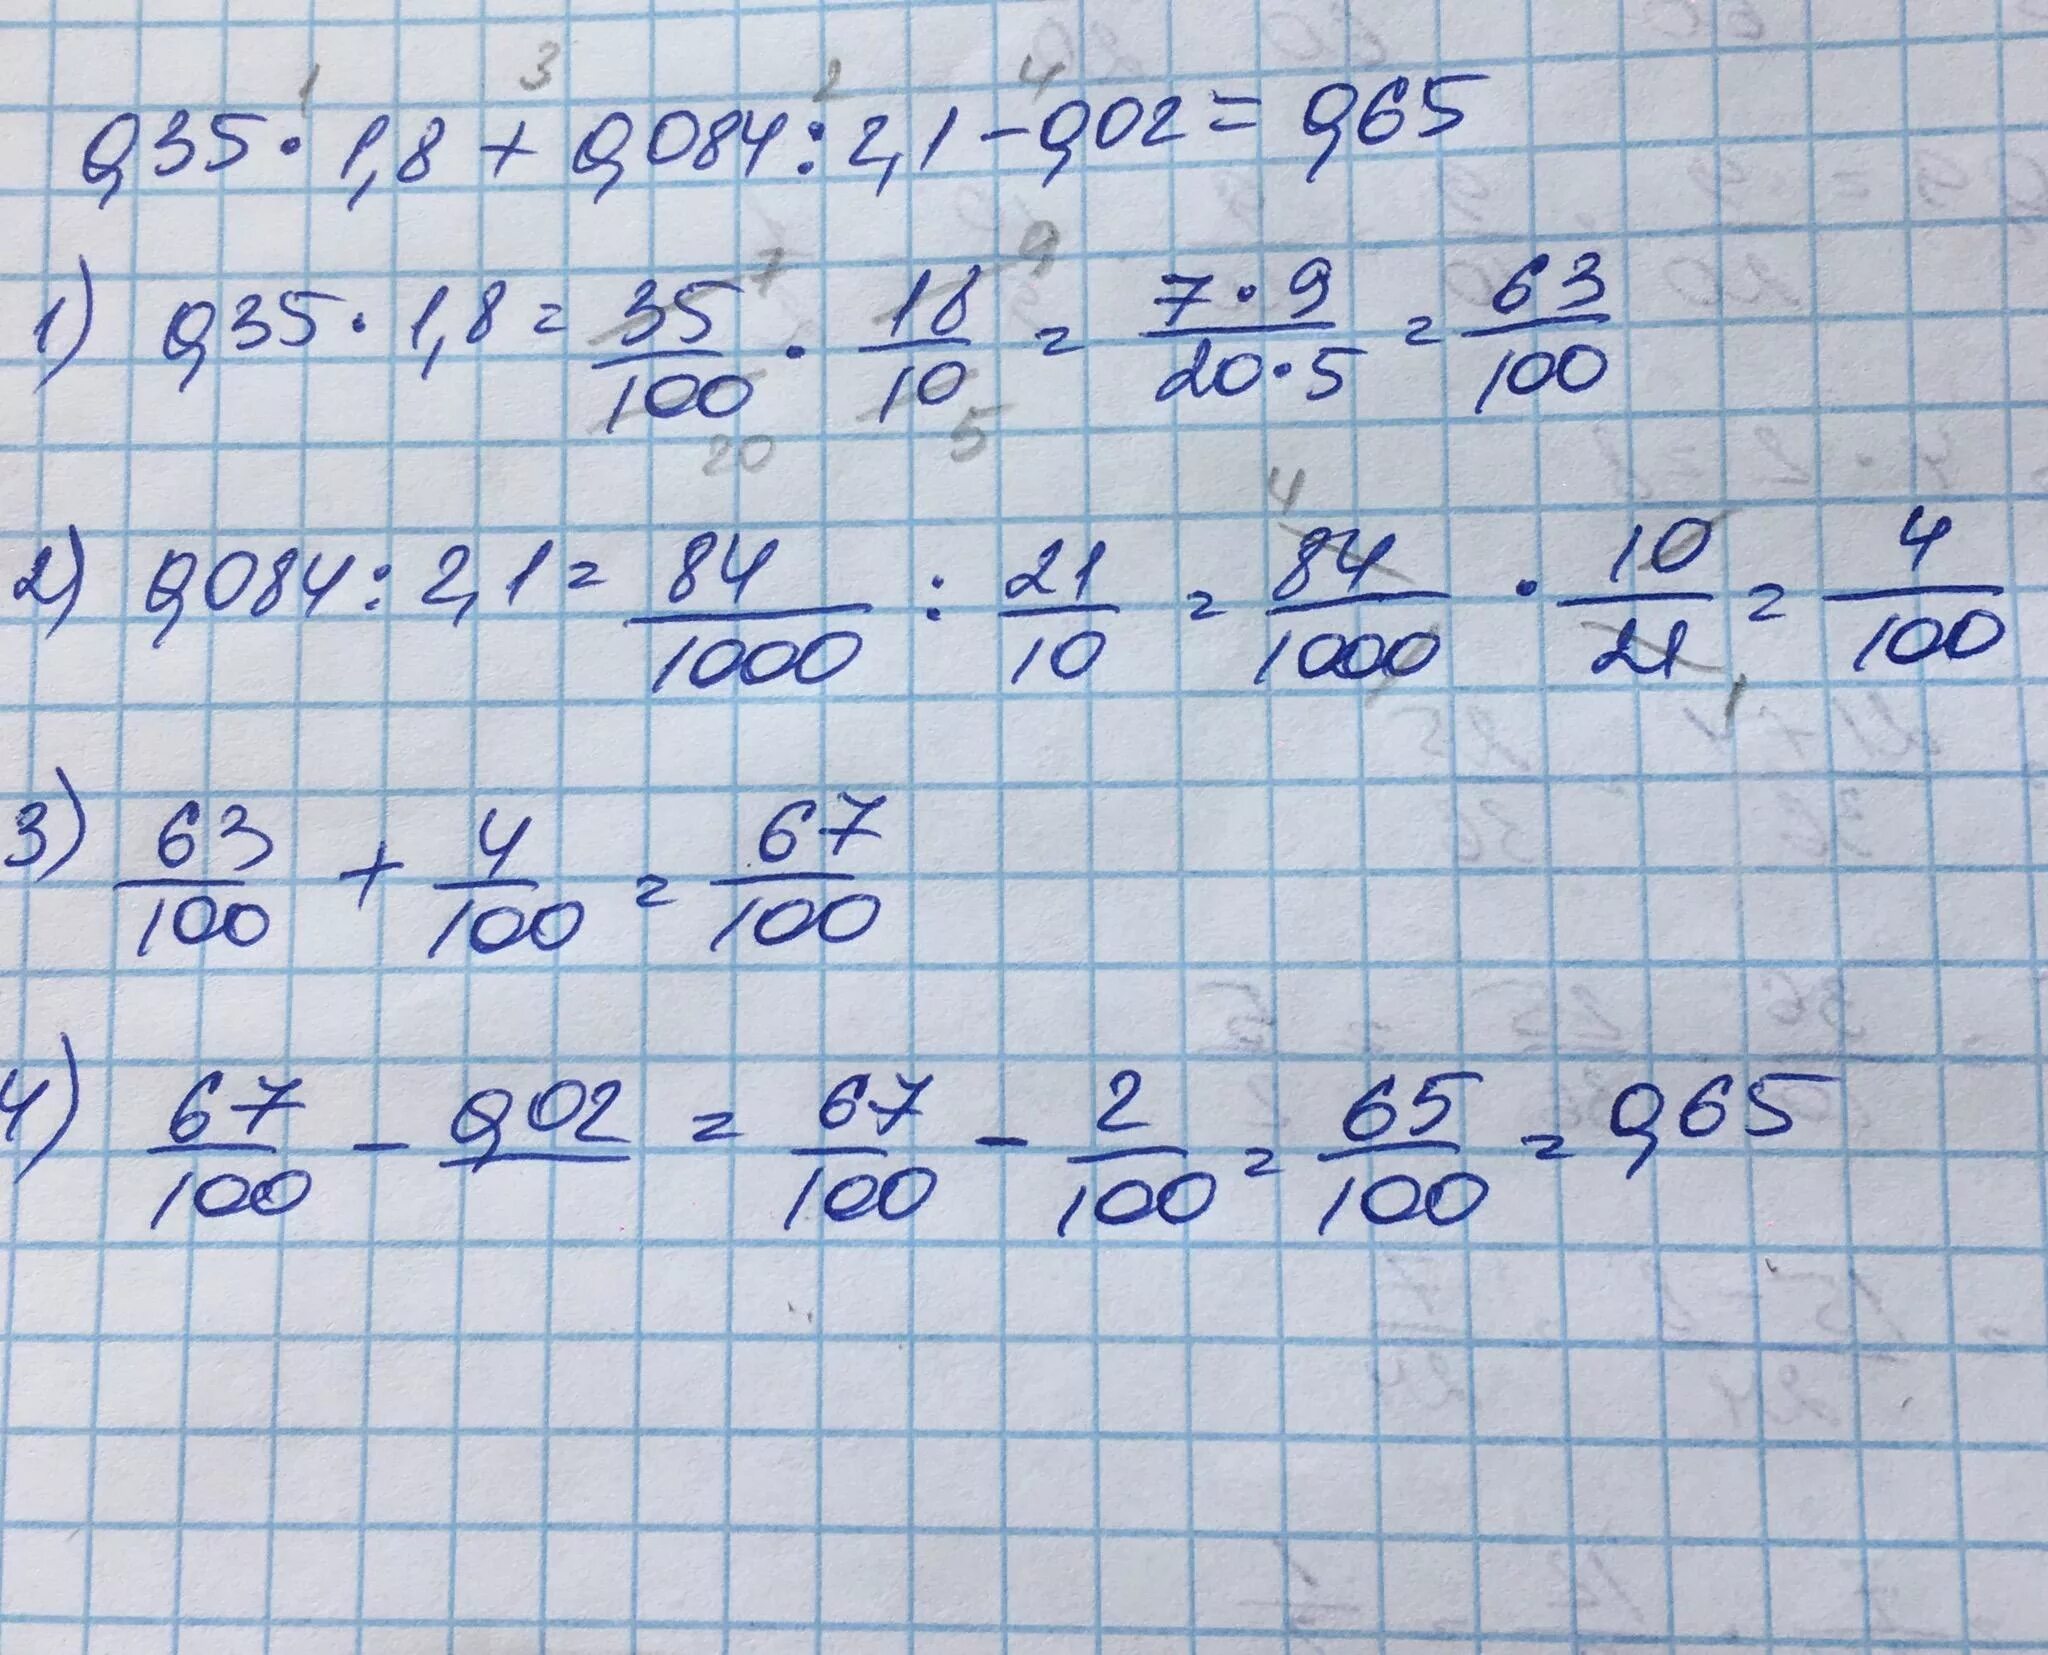 1 3 2 4
0,35 · 1,8 + 0,084 : 2,1 - 0,02 = 0,65
7 9
1) 0,35 · 1,8 = 35/100 · 18/10 = 7·9/20·5 = 63/100
20 5
4
2) 0,084 : 2,1 = 84/1000 : 21/10 = 84/1000 · 10/21 = 4/100
1
3) 63/100 + 4/100 = 67/100
4) 67/100 - 0,02 = 67/100 - 2/100 = 65/100 = 0,65